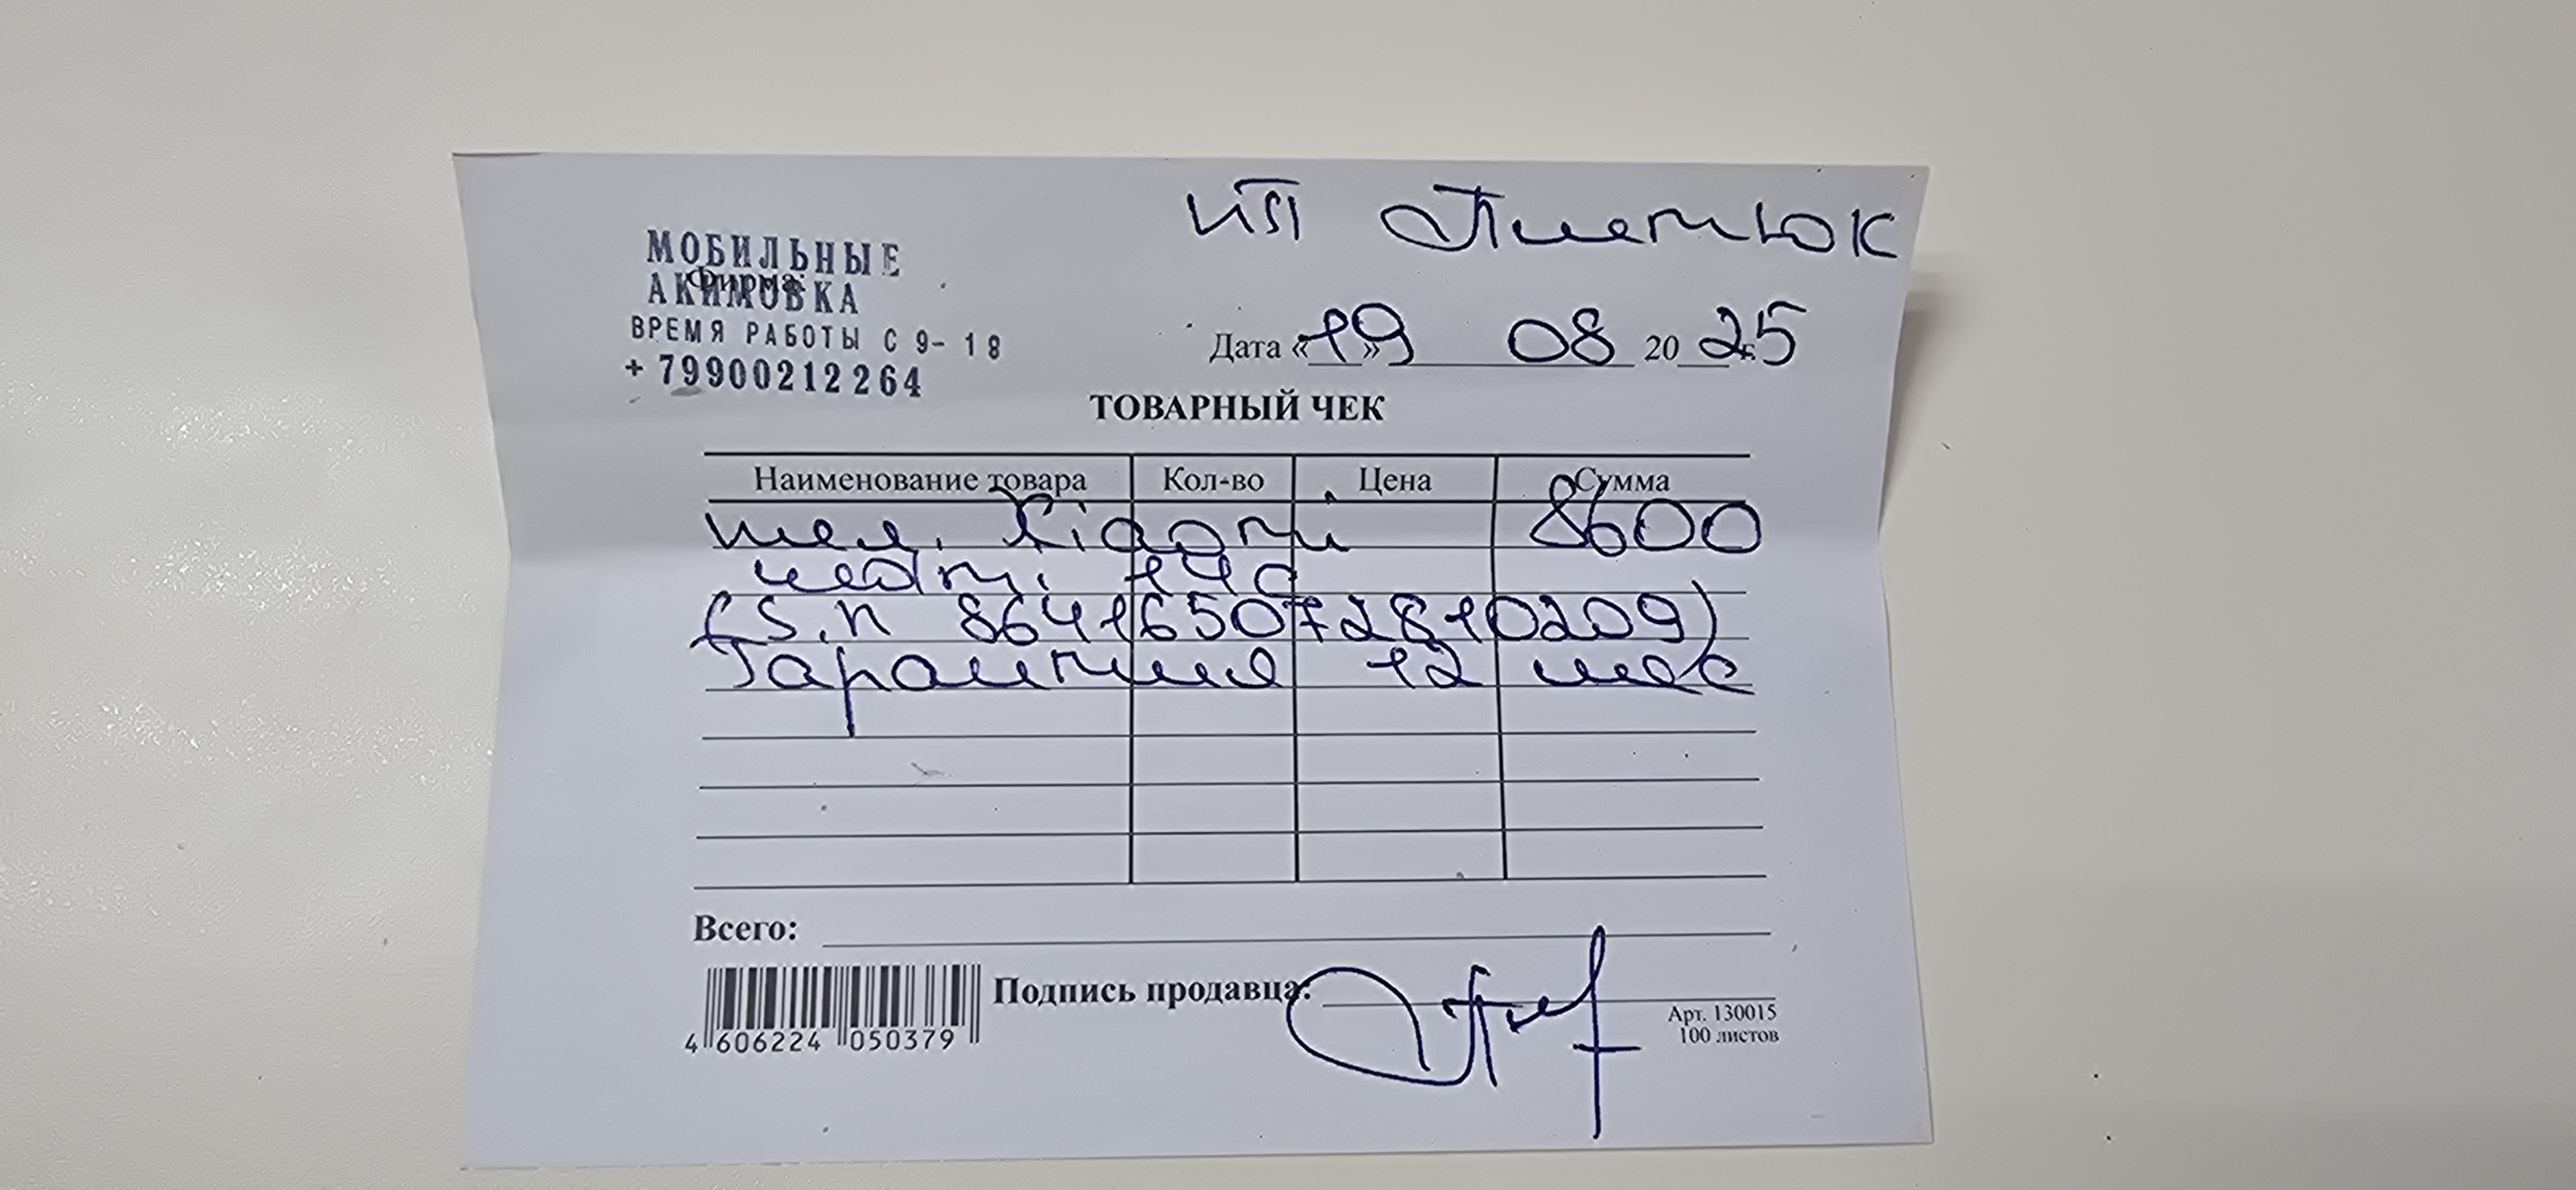 ИП Пметюк
МОБИЛЬНЫЕ
Фирма:
АКИМОВКА
ВРЕМЯ РАБОТЫ С 9-18
+79900212264
Дата «19» 08 2025 г.
ТОВАРНЫЙ ЧЕК
Наименование товара Кол-во Цена Сумма
тел. Xiaomi 8600
14C
(S.n 864165072810209)
Гарантия 12 мес
Всего:
Подпись продавца:
4 606224 050379
Арт. 130015
100 листов